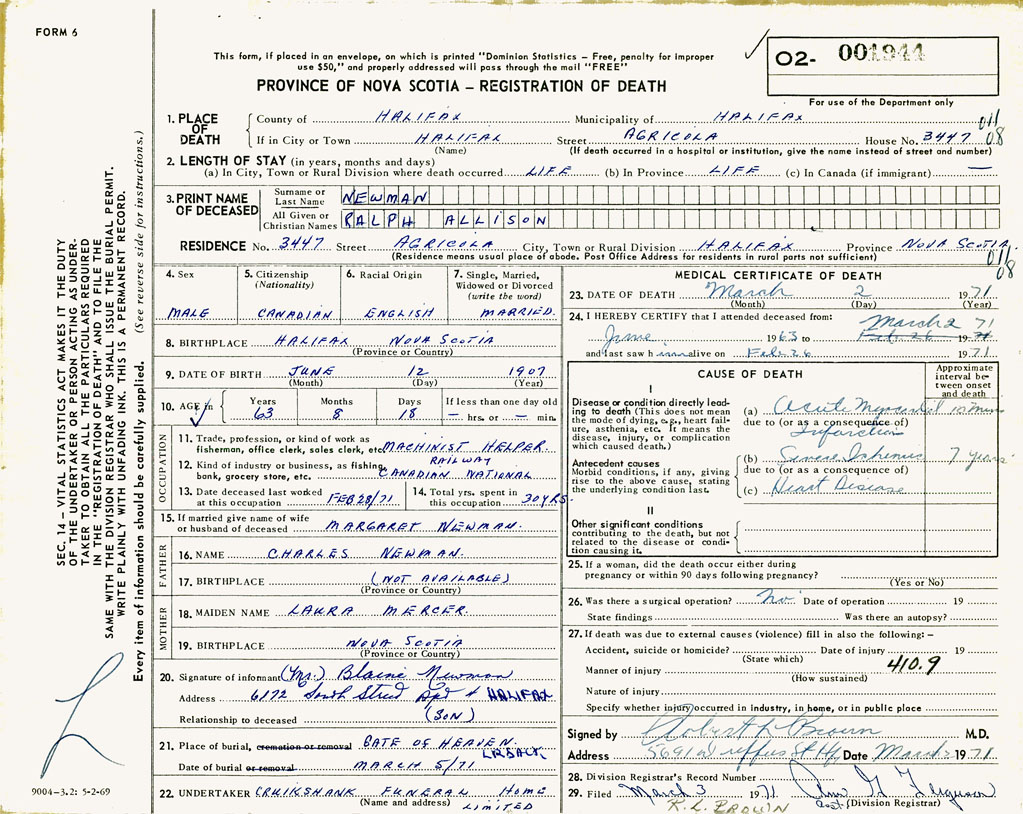 FORM 6
This form, if placed in an envelope, on which is printed "Dominion Statistics – Free, penalty for improper
use $50," and properly addressed will pass through the mail "FREE"
O2- 001944
PROVINCE OF NOVA SCOTIA – REGISTRATION OF DEATH
For use of the Department only
1. PLACE OF DEATH
County of HALIFAX Municipality of HALIFAX
011
If in City or Town HALIFAX Street AGRICOLA House No. 3447
08
(Name) (If death occurred in a hospital or institution, give the name instead of street and number)
2. LENGTH OF STAY (in years, months and days)
(a) In City, Town or Rural Division where death occurred LIFE (b) In Province LIFE (c) In Canada (if immigrant) —
3. PRINT NAME OF DECEASED
Surname or Last Name NEWMAN
All Given or Christian Names RALPH ALLISON
RESIDENCE No. 3447 Street AGRICOLA City, Town or Rural Division HALIFAX Province NOVA SCOTIA
(Residence means usual place of abode. Post Office Address for residents in rural parts not sufficient)
011
08
4. Sex
MALE
5. Citizenship
(Nationality)
CANADIAN
6. Racial Origin
ENGLISH
7. Single, Married,
Widowed or Divorced
(write the word)
MARRIED.
8. BIRTHPLACE HALIFAX NOVA SCOTIA
(Province or Country)
9. DATE OF BIRTH JUNE 12 1907
(Month) (Day) (Year)
10. AGE in
Years Months Days If less than one day old
63 8 18 — hrs. or — min.
OCCUPATION
11. Trade, profession, or kind of work as
fisherman, office clerk, sales clerk, etc. MACHINIST HELPER
12. Kind of industry or business, as fishing, RAILWAY
bank, grocery store, etc. CANADIAN NATIONAL
13. Date deceased last worked
at this occupation FEB 28/71
14. Total yrs. spent in
this occupation 30 YRS.
15. If married give name of wife
or husband of deceased MARGARET NEWMAN.
FATHER
16. NAME CHARLES NEWMAN.
17. BIRTHPLACE (NOT AVAILABLE)
(Province or Country)
MOTHER
18. MAIDEN NAME LAURA MERCER.
19. BIRTHPLACE NOVA SCOTIA
(Province or Country)
20. Signature of informant (Mr.) Blaine Newman
Address 6172 South Street Apt HALIFAX
Relationship to deceased (SON)
21. Place of burial, cremation or removal GATE OF HEAVEN
Date of burial or removal MARCH 5/71
22. UNDERTAKER CRUIKSHANK FUNERAL HOME
(Name and address) LIMITED
MEDICAL CERTIFICATE OF DEATH
23. DATE OF DEATH March 2 1971
(Month) (Day) (Year)
24. I HEREBY CERTIFY that I attended deceased from:
March 2 71
June 1963 to Feb 26 1971
and last saw h im alive on Feb 26 1971
CAUSE OF DEATH
Approximate
interval be-
tween onset
and death
I
Disease or condition directly lead-
ing to death (This does not mean
the mode of dying, e.g., heart fail-
ure, asthenia, etc. It means the
disease, injury, or complication
which caused death.)
(a) Acute Myocardial 10 min
due to (or as a consequence of)
Infarction
Antecedent causes
Morbid conditions, if any, giving
rise to the above cause, stating
the underlying condition last.
(b) Severe Ischemic 7 years
due to (or as a consequence of)
(c) Heart Disease
II
Other significant conditions
contributing to the death, but not
related to the disease or condi-
tion causing it.
25. If a woman, did the death occur either during
pregnancy or within 90 days following pregnancy?
(Yes or No)
26. Was there a surgical operation? No Date of operation 19
State findings Was there an autopsy?
27. If death was due to external causes (violence) fill in also the following: –
Accident, suicide or homicide? Date of injury 19
(State which)
Manner of injury 410.9
(How sustained)
Nature of injury
Specify whether injury occurred in industry, in home, or in public place
Signed by Robert L Brown M.D.
Address 5691 St Hfx Date March 1971
28. Division Registrar's Record Number
29. Filed March 3 1971 Ferguson
(Division Registrar)
R. L. BROWN
SEC. 14 – VITAL STATISTICS ACT MAKES IT THE DUTY
OF THE UNDERTAKER OR PERSON ACTING AS UNDER-
TAKER TO OBTAIN ALL THE PARTICULARS REQUIRED
IN THE "REGISTRATION OF DEATH" AND TO FILE THE
SAME WITH THE DIVISION REGISTRAR WHO SHALL ISSUE THE BURIAL PERMIT.
WRITE PLAINLY WITH UNFADING INK. THIS IS A PERMANENT RECORD.
Every item of information should be carefully supplied. (See reverse side for instructions.)
9004–3.2: 5-2-69